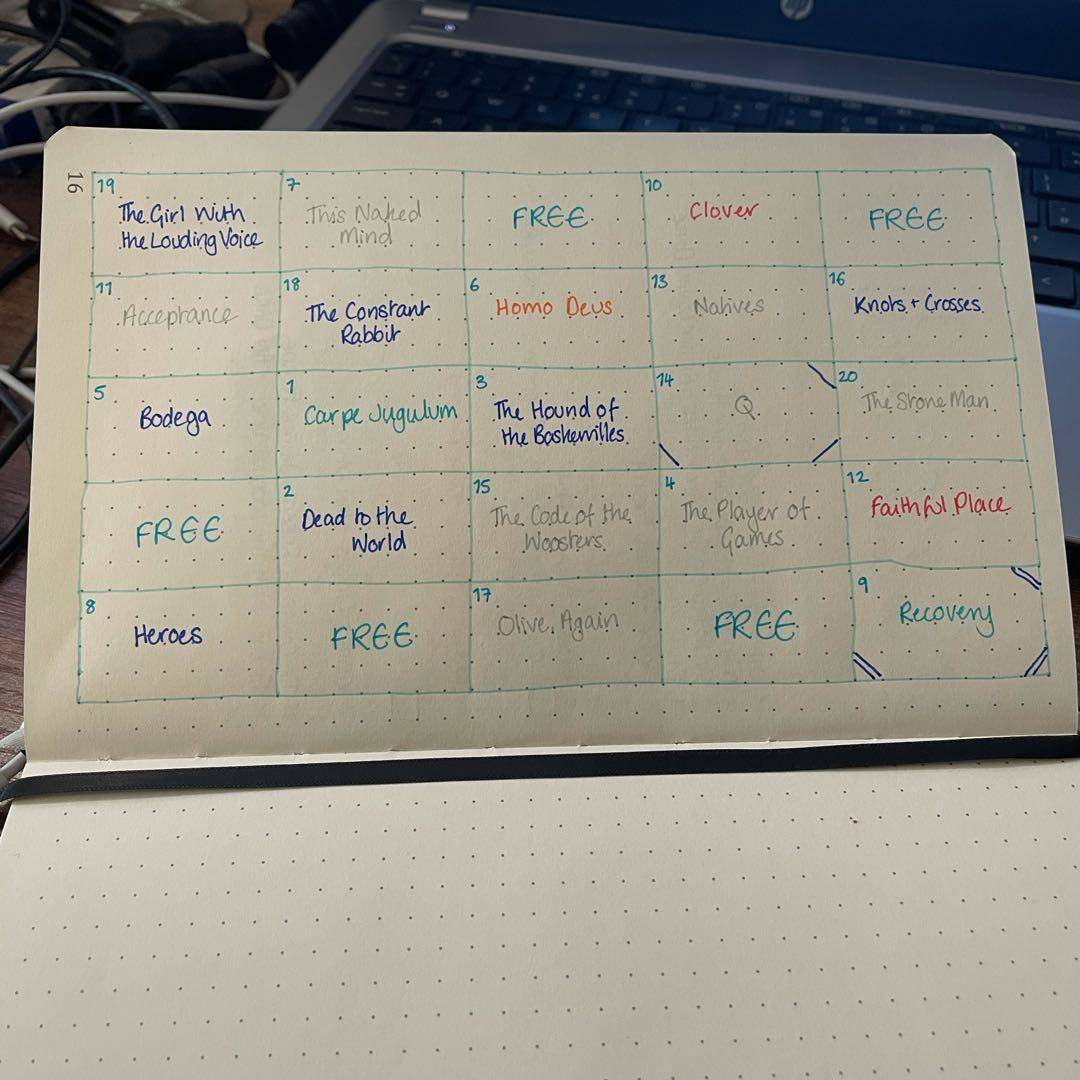 hp
16
19
The Girl With
the Louding Voice
7
This Naked
Mind
FREE
10
Clover
FREE
11
Acceptance
18
The Constant
Rabbit
6
Homo Deus
13
Natives
16
Knots + Crosses
5
Bodega
1
Carpe Jugulum
3
The Hound of
the Baskervilles
14
Q
20
The Stone Man
FREE
2
Dead to the
World
15
The Code of the
Woosters
4
The Player of
Games
12
Faithful Place
8
Heroes
FREE
17
Olive, Again
FREE
9
Recovery